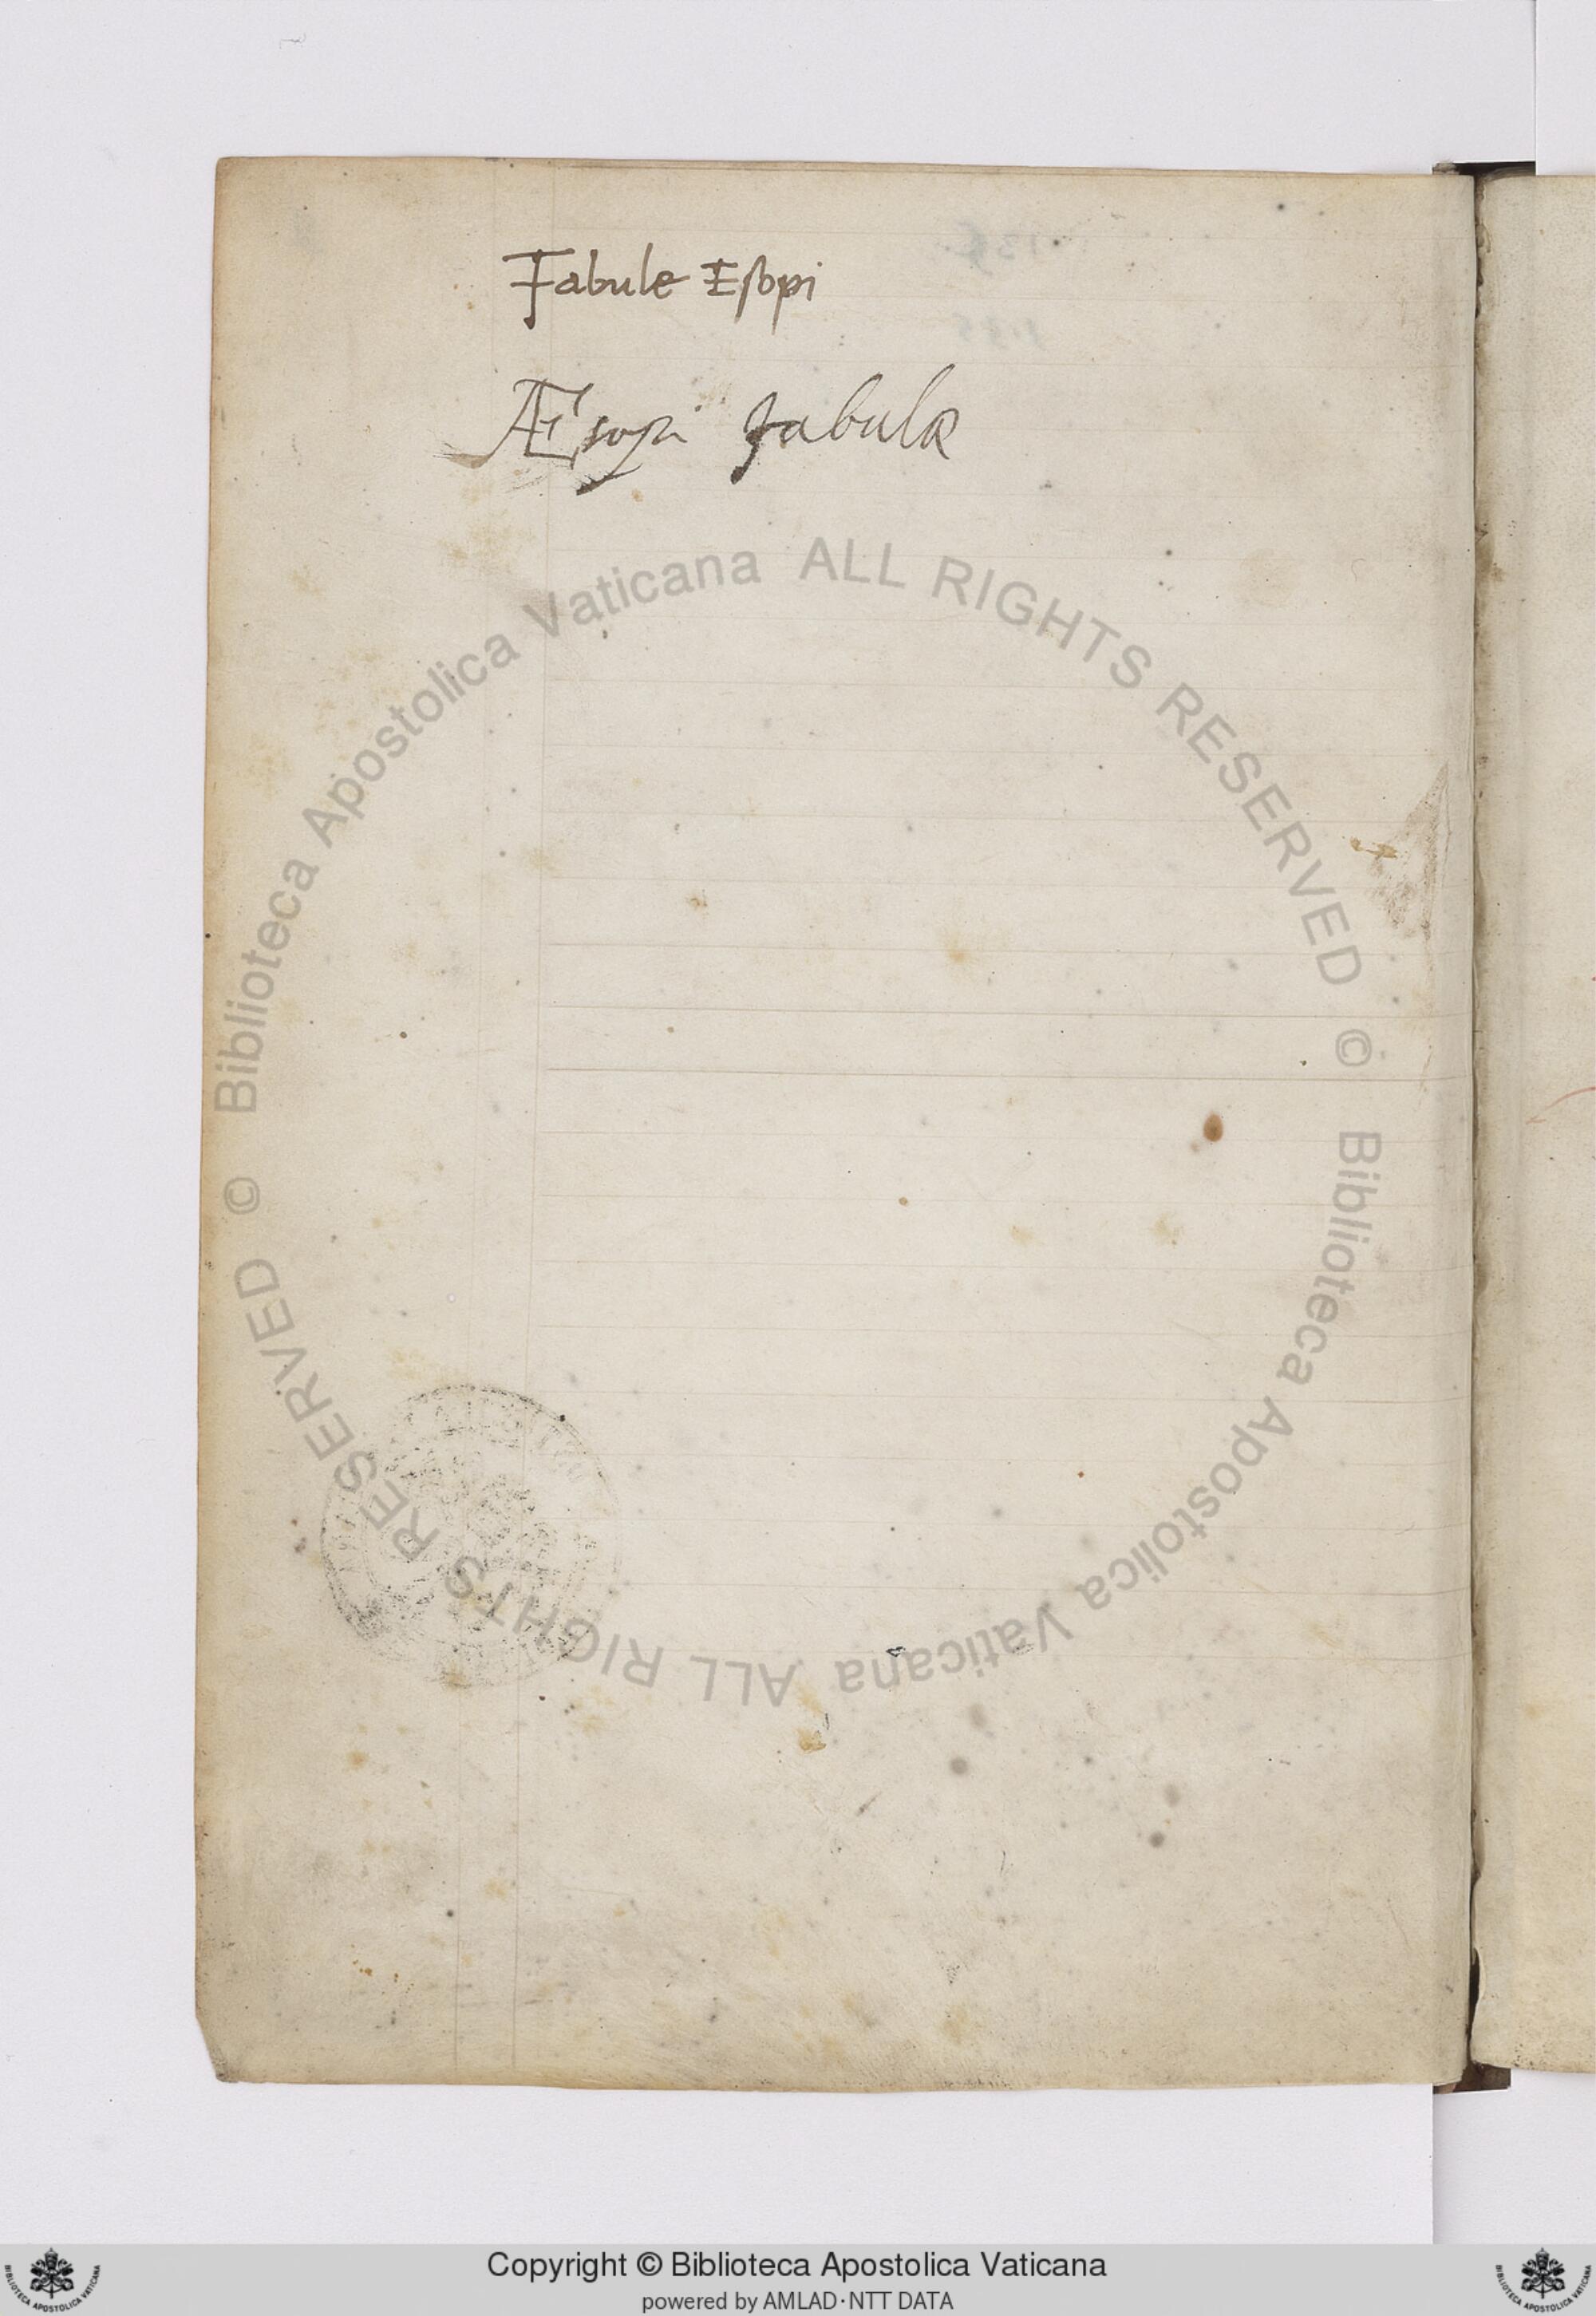 Fabule Esopi
Æsopi fabulæ
© Biblioteca Apostolica Vaticana ALL RIGHTS RESERVED
© Biblioteca Apostolica Vaticana ALL RIGHTS RESERVED
Copyright © Biblioteca Apostolica Vaticana
powered by AMLAD·NTT DATA
BIBLIOTECA APOSTOLICA VATICANA
BIBLIOTECA APOSTOLICA VATICANA